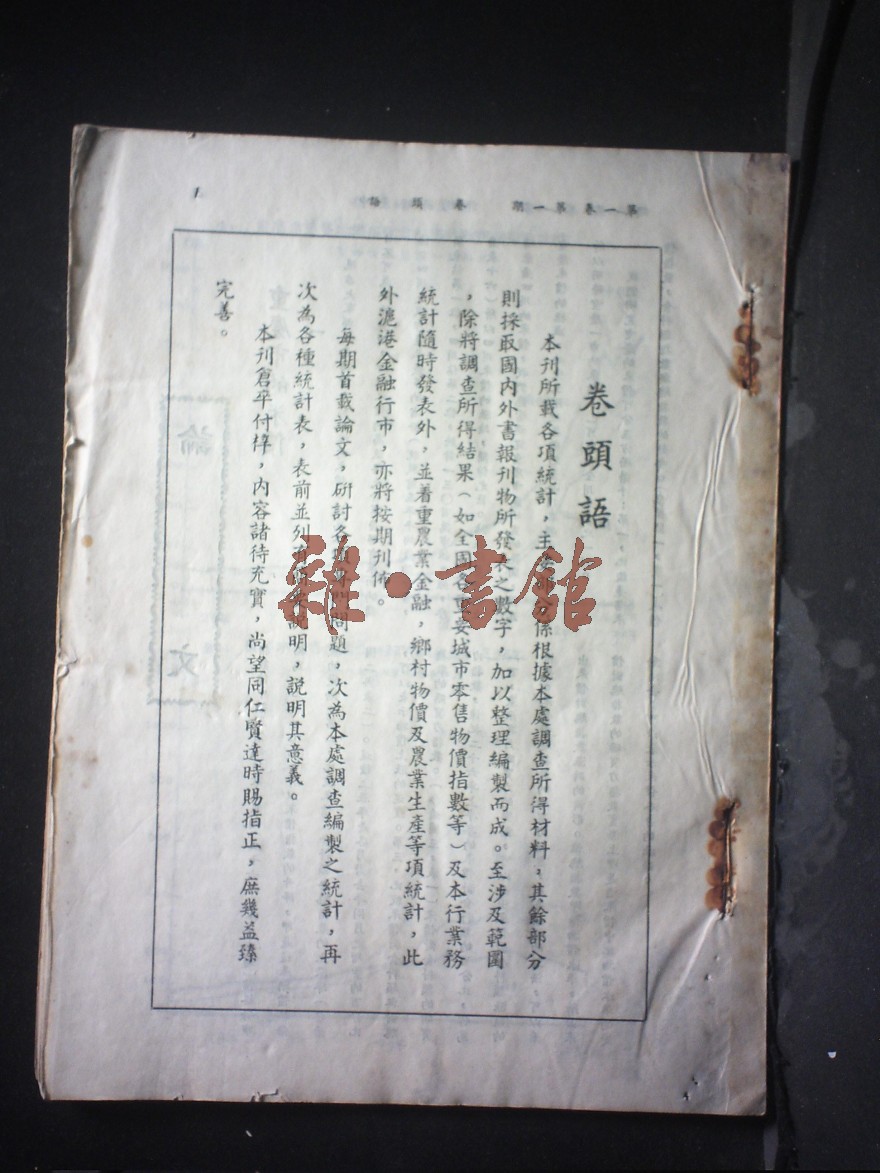 第一卷第一期 卷頭語
1
卷頭語
本刊所載各項統計，主要部分係根據本處調查所得材料，其餘部分
則採取國內外書報刊物所發表之數字，加以整理編製而成。至涉及範圍
，除將調查所得結果（如全國各重要城市零售物價指數等）及本行業務
統計隨時發表外，並着重農業金融，鄉村物價及農業生產等項統計，此
外滬港金融行市，亦將按期刊佈。
每期首載論文，研討各 問題，次為本處調查編製之統計，再
次為各種統計表，表前並列 說明，說明其意義。
本刊倉卒付梓，內容諸待充實，尚望同仁賢達時賜指正，庶幾益臻
完善。
雜·書館
論文